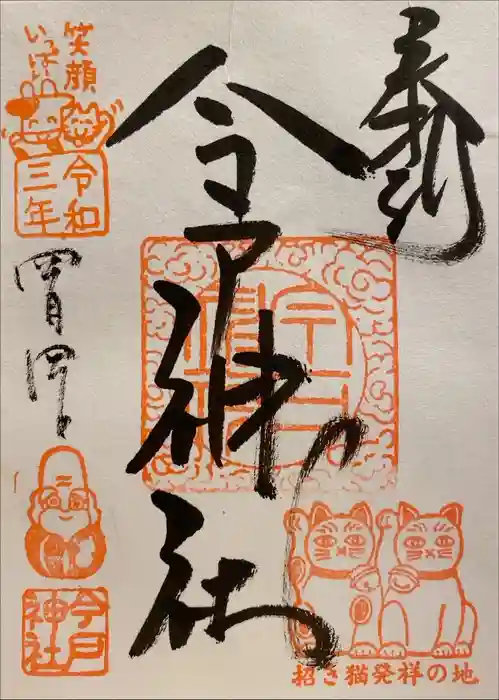 奉拝
今戸神社
笑顔
いっぱい
令和
三年
四月四日
今戸
神社
招き猫発祥の地